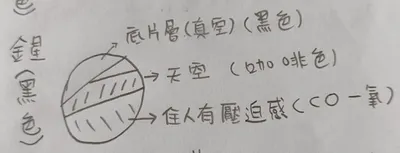 色)
金星(黑色)
底片層(真空)(黑色)
天空(咖啡色)
住人有壓迫感(CO一氧)